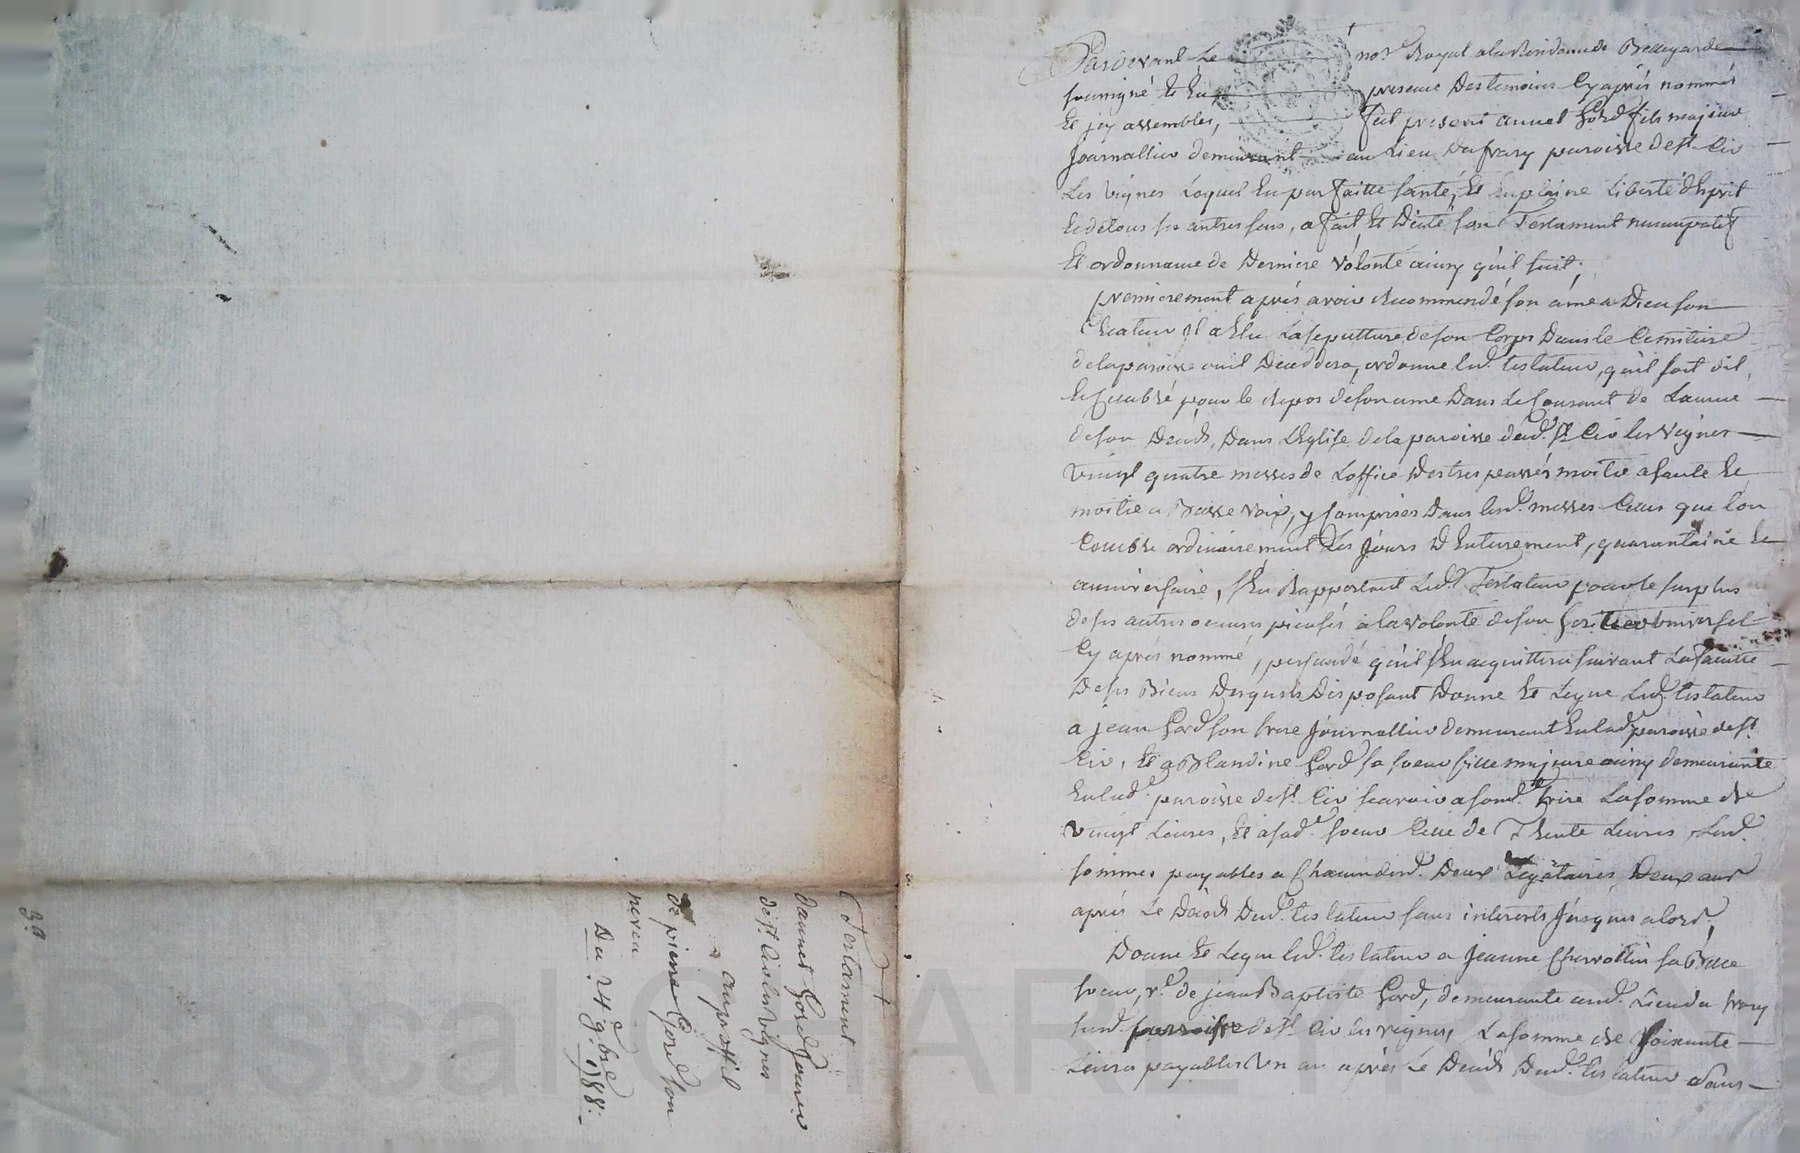 Pardevant Le notre Royal a la Residence de Bellegarde
soussigné Et En presence Des temoins Cy aprés nommés
Et jcy assemblés, fut present annet Gord fils majeur
Journallier demeurant au Lieu Dufrary paroisse de St. Cir
Les vignes Lequel En parfaitte santé, Et En plaine Liberté d'Esprit
Et de tous ses autres sens, a fait Et Dicté son Testament nuncupatif
Et ordonnance de Derniere volonté ainsy qu'il suit,
premierement aprés avoir Recommendé son ame a Dieu son
Createur Il a Elu La sepulture de son Corps Dans le Cemitiere
de la paroisse ou il Deceddera, ordonne led. testateur, qu'il soit dit,
Et Celebré pour le Repos de son ame Dans Le Courant de L'année
de son Decés, Dans L'Eglise de la paroisse dud. St. Cir les vignes
vingt quatre messes de L'office Des trespassés moitié a haute Et
moitié a Basse voix, y Comprises Dans lesd. messes Celles que l'on
Celebre ordinairement Les Jours D'Enterement, quarantaine Et
anniversaire, s'En Rapportant Led. Testateur pour le surplus
de ses autres oeuvres pieuses a la volonté de son heritier universel
Cy aprés nommé, persuadé qu'il s'En acquittera suivant La faculté
De ses Biens Desquels Disposant Donne Et Legue Led. testateur
a jean Gord son frere Journallier demeurant En lad. paroisse de St.
Cir, Et a Blandine Gord sa soeur fille majeure ainsy demeurante
En lad. paroisse de St. Cir scavoir a sond. frere La somme de
vingt Livres, Et a sad. soeur Celle de Trente Livres, Lesd.
sommes payables a Chacun desd. Deux Legataires, Deux ans
aprés Le Décés Dud. testateur sans interets Jusques alors,
Donne Et Legue led. testateur a Jeanne Chevrottin sa Belle
soeur, ve. de jean Baptiste Gord, demeurante aud. Lieu du frary
susd. paroisse de St. Cir les vignes, La somme de soixante
Livres payables Un an aprés Le Decés Dud. testateur sans
Testament
d'annet Gord Jour.er
de St. Cir les vignes
au proffit
de pierre Gord son
neveu
Du 24 9.bre 1788.